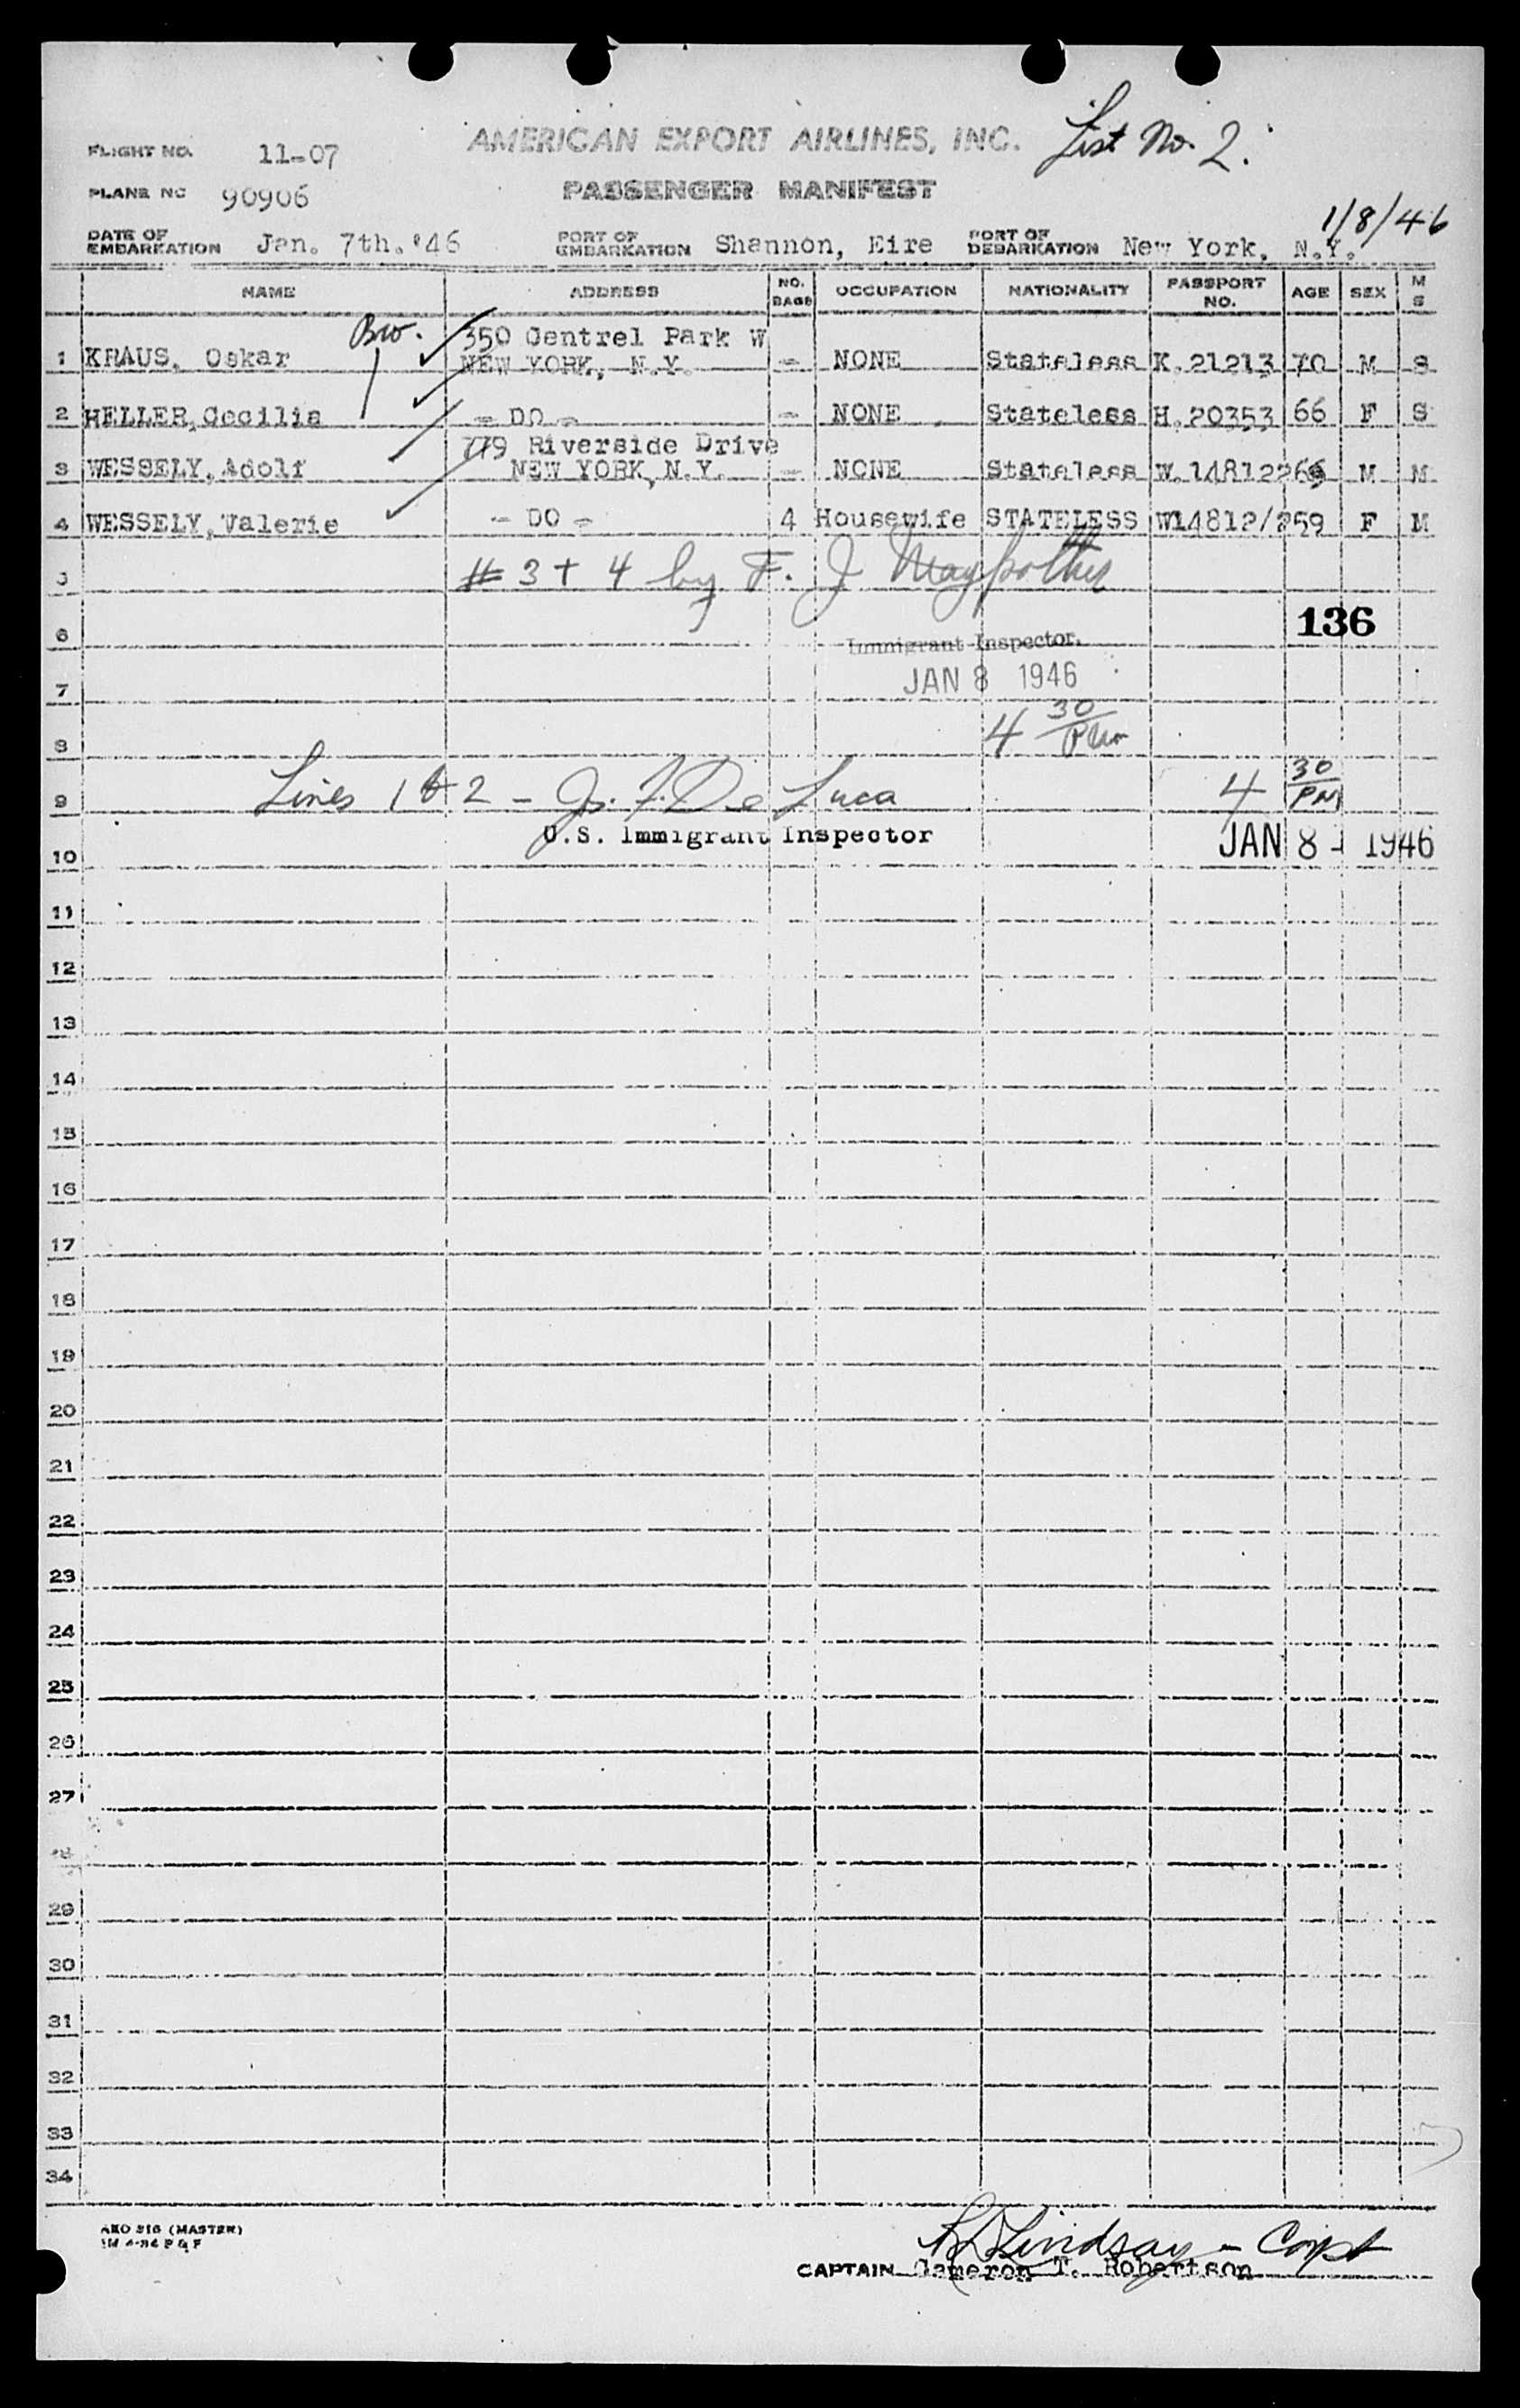 List No. 2.
FLIGHT NO. 11-07 AMERICAN EXPORT AIRLINES, INC.
PLANE NO 90906 PASSENGER MANIFEST
1/8/46
DATE OF EMBARKATION Jan. 7th. '46 PORT OF EMBARKATION Shannon, Eire PORT OF DEBARKATION New York, N.Y.
NAME ADDRESS NO. BAGS OCCUPATION NATIONALITY PASSPORT NO. AGE SEX M S
Bro. 350 Centrel Park W
1 KRAUS, Oskar NEW YORK, N.Y. - NONE Stateless K.21213 70 M S
2 HELLER, Cecilia - DO - - NONE Stateless H.20353 66 F S
779 Riverside Drive
3 WESSELY, Adolf NEW YORK, N.Y. - NONE Stateless W.14812 M M
4 WESSELY, Valerie - DO - 4 Housewife STATELESS W14812/2 59 F M
5 # 3 + 4 by F. J
136
6 Immigrant Inspector.
7 JAN 8 1946
8 4 30 PM
9 Lines 1 & 2 - Js. F. De Luca 4 30 PM
U.S. Immigrant Inspector JAN 8 - 1946
10
11
12
13
14
15
16
17
18
19
20
21
22
23
24
25
26
27
28
29
30
31
32
33
34
AEO 316 (MASTER)
Lindsay - Capt
CAPTAIN Cameron T. Robertson